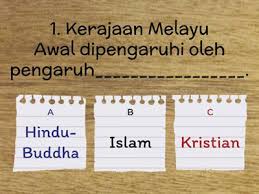 1. Kerajaan Melayu
Awal dipengaruhi oleh
pengaruh_________________.
A
B
C
Hindu-
Buddha
Islam
Kristian